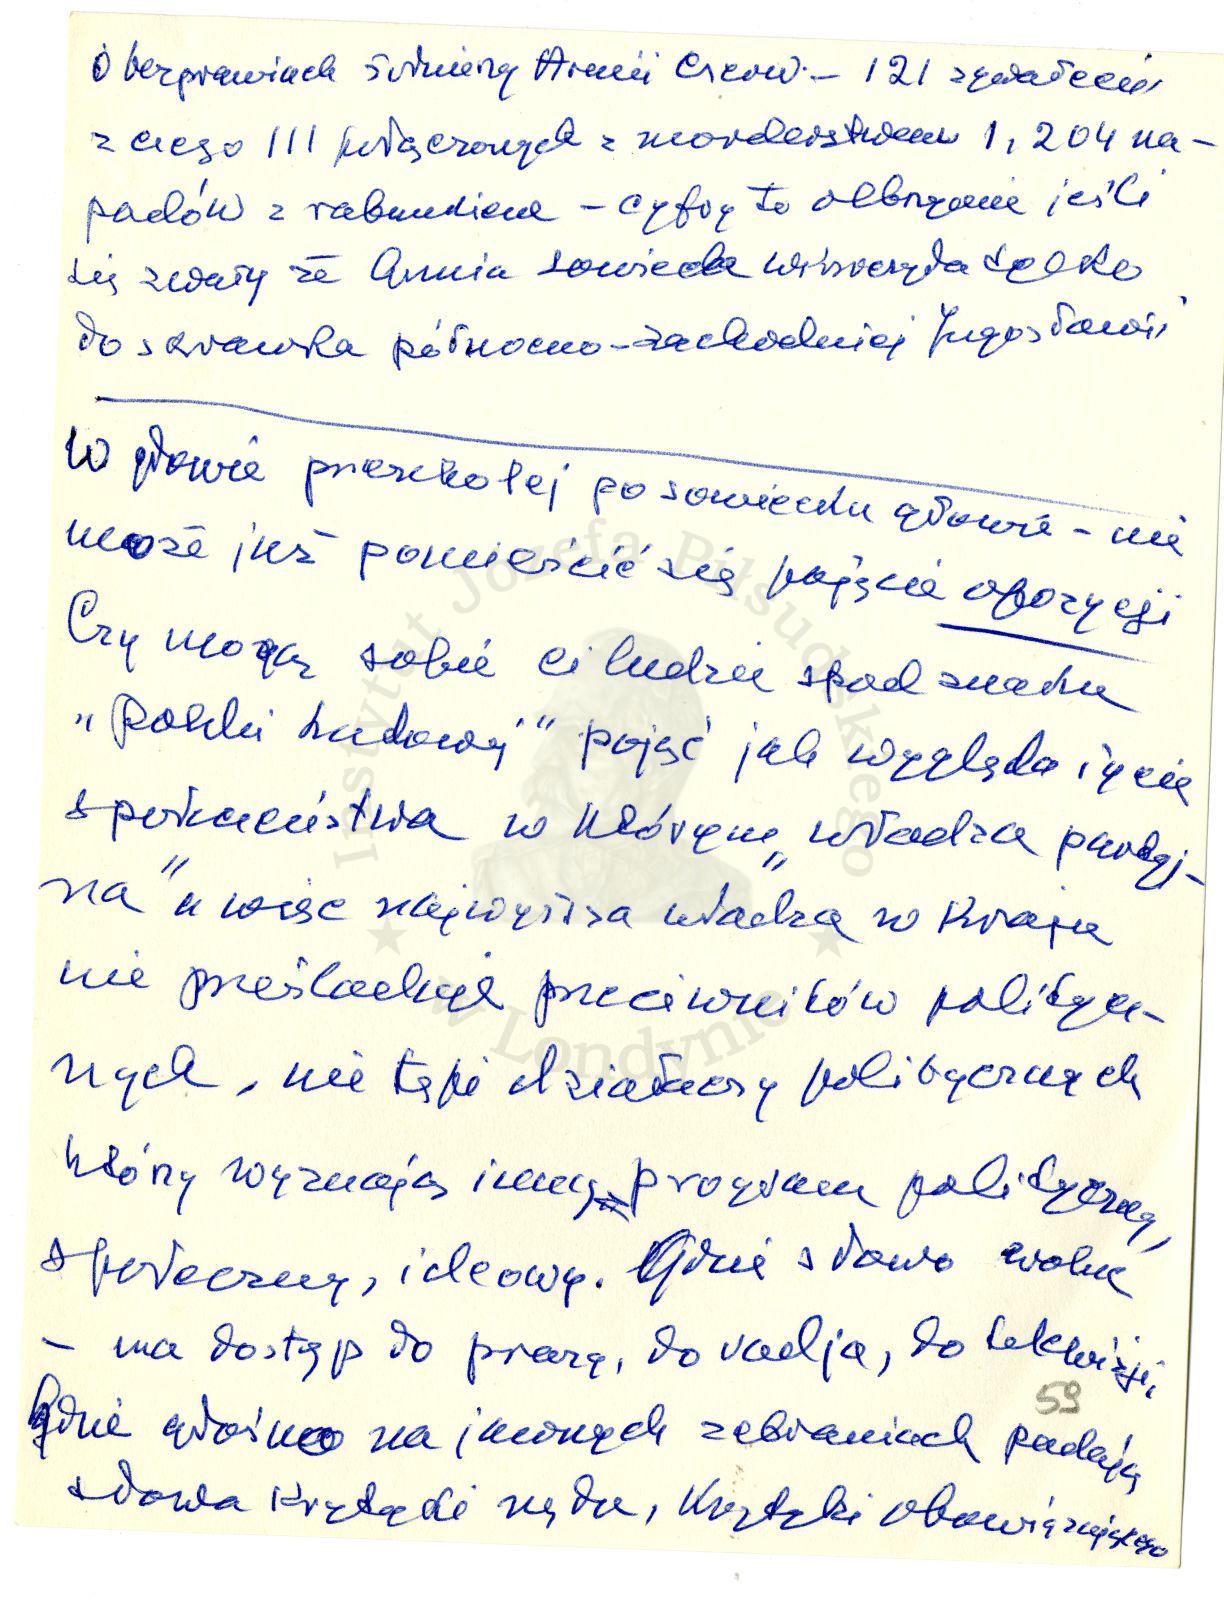 o bezprawiach żołnierzy Armii Czerw. – 121 zgwałceń,
z czego 111 połączonych z morderstwem 1,204 na-
padów z rabunkiem – cyfry to olbrzymie jeśli
się zważy że Armia sowiecka wkroczyła tylko
do skrawka północno-zachodniej Jugosławii
W głowie przeszkolej po sowiecku głowie – nie
może już pomieścić się pojęcie opozycji
Czy mogą sobie ci ludzie spod znaku
"Polski Ludowej" pojąć jak wygląda życie
społeczeństwa w którym „władza partyj-
na" a więc najwyższa władza w kraju
nie prześladuje przeciwników politycz-
nych, nie tępi działaczy politycznych
którzy wyznają inny program polityczny,
społeczny, ideowy. Gdzie słowo wolne
– ma dostęp do prasy, do radja, do telewizji,
Gdzie głośno na jawnych zebraniach padają
słowa krytyki rządu, krytyki obowiązującego
59
Instytut Józefa Piłsudskiego
w Londynie